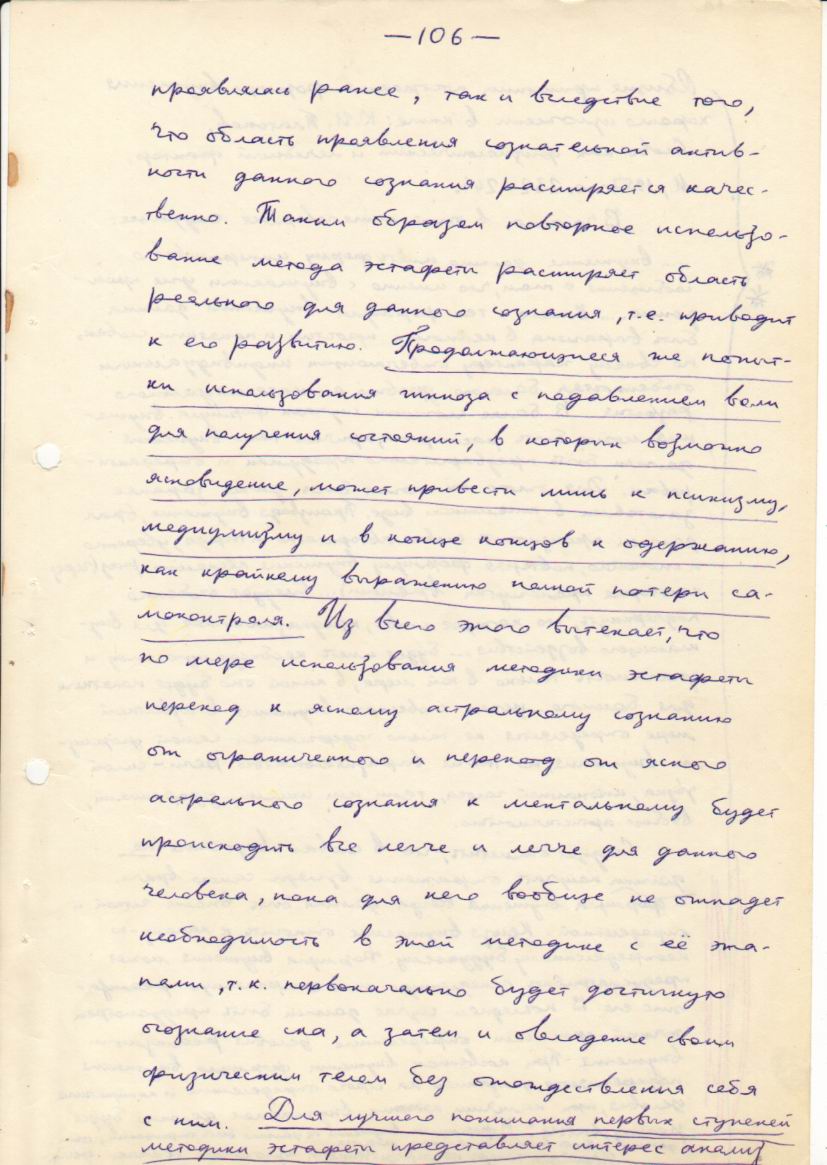 —106—
проявлялась ранее, так и вследствие того,
что область проявления сознательной актив-
ности данного сознания расширяется качес-
твенно. Таким образом повторное использо-
вание метода эстафеты расширяет область
реального для данного сознания, т.е. приводит
к его развитию. Продолжающиеся же попыт-
ки использования гипноза с подавлением воли
для получения состояний, в которых возможно
ясновидение, может привести лишь к психизму,
медиумизму и в конце концов к одержанию,
как крайнему выражению полной потери са-
моконтроля. Из всего этого вытекает, что
по мере использования методики эстафеты
переход к ясному астральному сознанию
от ограниченного и переход от ясного
астрального сознания к ментальному будет
происходить все легче и легче для данного
человека, пока для него вообще не отпадет
необходимость в этой методике с её эта-
пами, т.к. первоначально будет достигнуто
осознание сна, а затем и овладение своим
физическим телом без отождествления себя
с ним. Для лучшего понимания первых ступеней
методики эстафеты представляет интерес анализ